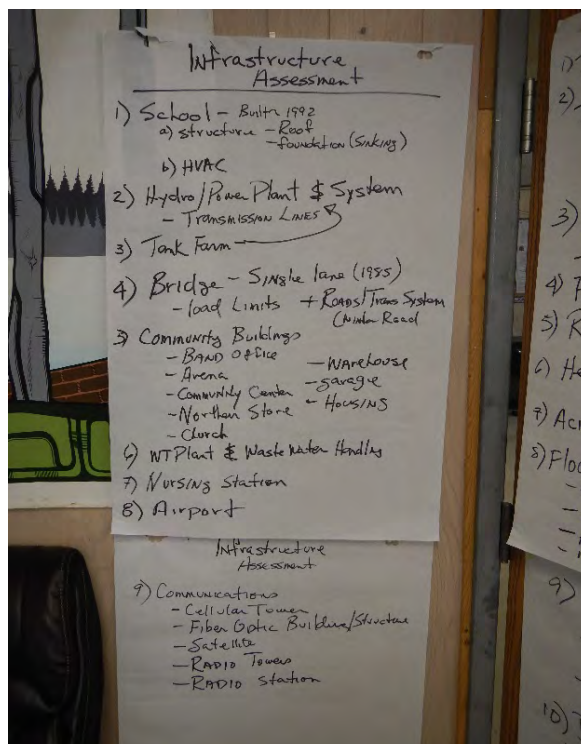 Infrastructure
Assessment
1) School - Built 1992
a) structure - Roof
- foundation (Sinking)
b) HVAC
2) Hydro/Power Plant & System
- Transmission Lines
3) Tank Farm
4) Bridge - Single lane (1985)
- load Limits + Roads/Trans System
(Winter Road
5) Community Buildings
- BAND Office
- Arena
- Community Center
- Northern Store
- Church
- Warehouse
- garage
- Housing
6) WT Plant & Waste Water Handling
7) Nursing Station
8) Airport
Infrastructure
Assessment
9) Communications
- Cellular Tower
- Fiber Optic Building/Structure
- Satellite
- RADIO Towers
- RADIO Station
1)
2)
3)
4)
5) R
6) He
7) Acr
8) Floo
9)
10)